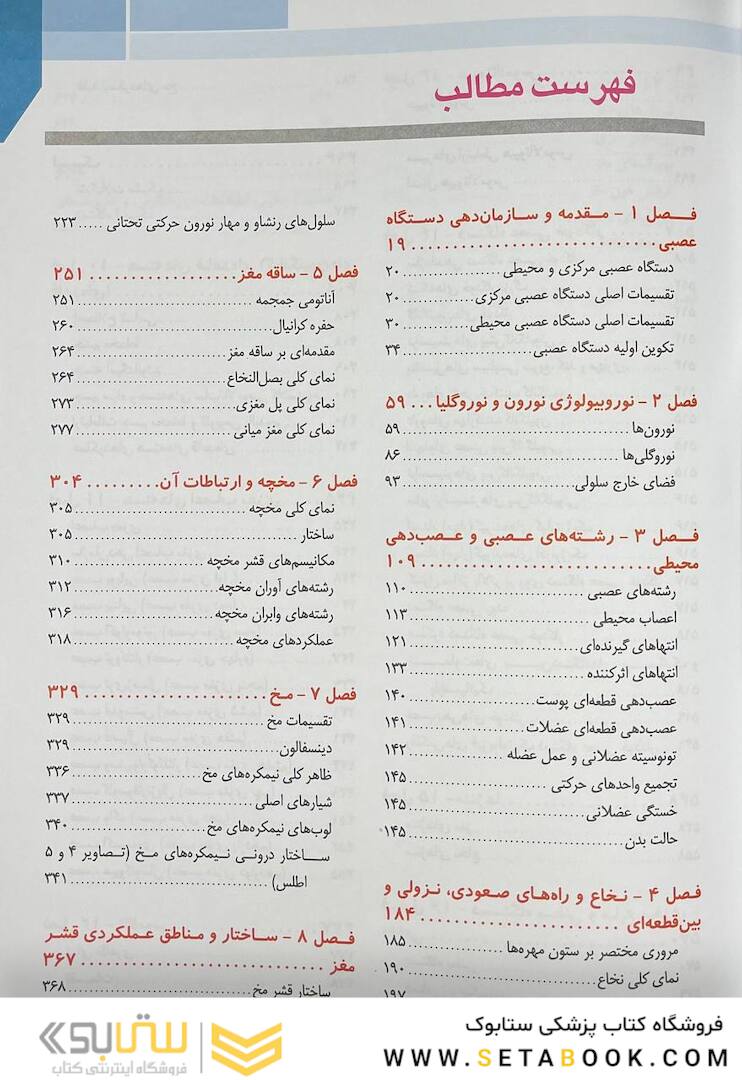 فهرست مطالب
فصل ۱ - مقدمه و سازمان‌دهی دستگاه
عصبی ............................ ۱۹
دستگاه عصبی مرکزی و محیطی .................. ۲۰
تقسیمات اصلی دستگاه عصبی مرکزی ........... ۲۰
تقسیمات اصلی دستگاه عصبی محیطی ........... ۳۰
تکوین اولیه دستگاه عصبی ..................... ۳۴
فصل ۲ - نوروبیولوژی نورون و نوروگلیا ... ۵۹
نورون‌ها ........................................ ۵۹
نوروگلی‌ها ...................................... ۸۶
فضای خارج سلولی .............................. ۹۳
فصل ۳ - رشته‌های عصبی و عصب‌دهی
محیطی ............................ ۱۰۹
رشته‌های عصبی ................................ ۱۱۰
اعصاب محیطی ................................. ۱۱۳
انتهاهای گیرنده‌ای .............................. ۱۲۱
انتهاهای اثرکننده ............................... ۱۳۳
عصب‌دهی قطعه‌ای پوست ...................... ۱۴۰
عصب‌دهی قطعه‌ای عضلات .................... ۱۴۱
تونوسیته عضلانی و عمل عضله ................ ۱۴۲
تجمیع واحدهای حرکتی ........................ ۱۴۵
خستگی عضلانی ............................... ۱۴۵
حالت بدن ...................................... ۱۴۵
فصل ۴ - نخاع و راه‌های صعودی، نزولی و
بین‌قطعه‌ای ........................ ۱۸۴
مروری مختصر بر ستون مهره‌ها ................. ۱۸۵
نمای کلی نخاع ................................. ۱۹۰
۱۹۷
سلول‌های رنشاو و مهار نورون حرکتی تحتانی ..... ۲۲۳
فصل ۵ - ساقه مغز .................. ۲۵۱
آناتومی جمجمه ................................ ۲۵۱
حفره کرانیال ................................... ۲۶۰
مقدمه‌ای بر ساقه مغز .......................... ۲۶۴
نمای کلی بصل‌النخاع .......................... ۲۶۴
نمای کلی پل مغزی ............................ ۲۷۳
نمای کلی مغز میانی ............................ ۲۷۷
فصل ۶ - مخچه و ارتباطات آن ......... ۳۰۴
نمای کلی مخچه ............................... ۳۰۵
ساختار ......................................... ۳۰۵
مکانیسم‌های قشر مخچه ....................... ۳۱۰
رشته‌های آوران مخچه .......................... ۳۱۲
رشته‌های وابران مخچه ......................... ۳۱۶
عملکردهای مخچه ............................. ۳۱۸
فصل ۷ - مخ ........................ ۳۲۹
تقسیمات مخ ................................... ۳۲۹
دینسفالون ...................................... ۳۲۹
ظاهر کلی نیمکره‌های مخ ...................... ۳۳۶
شیارهای اصلی ................................. ۳۳۷
لوب‌های نیمکره‌های مخ ........................ ۳۴۰
ساختار درونی نیمکره‌های مخ (تصاویر ۴ و ۵
اطلس) ......................................... ۳۴۱
فصل ۸ - ساختار و مناطق عملکردی قشر
مغز .............................. ۳۶۷
ساختار قشر مخ ................................. ۳۶۸
فروشگاه کتاب پزشکی ستابوک
WWW.SETABOOK.COM
ستابوک
فروشگاه اینترنتی کتاب